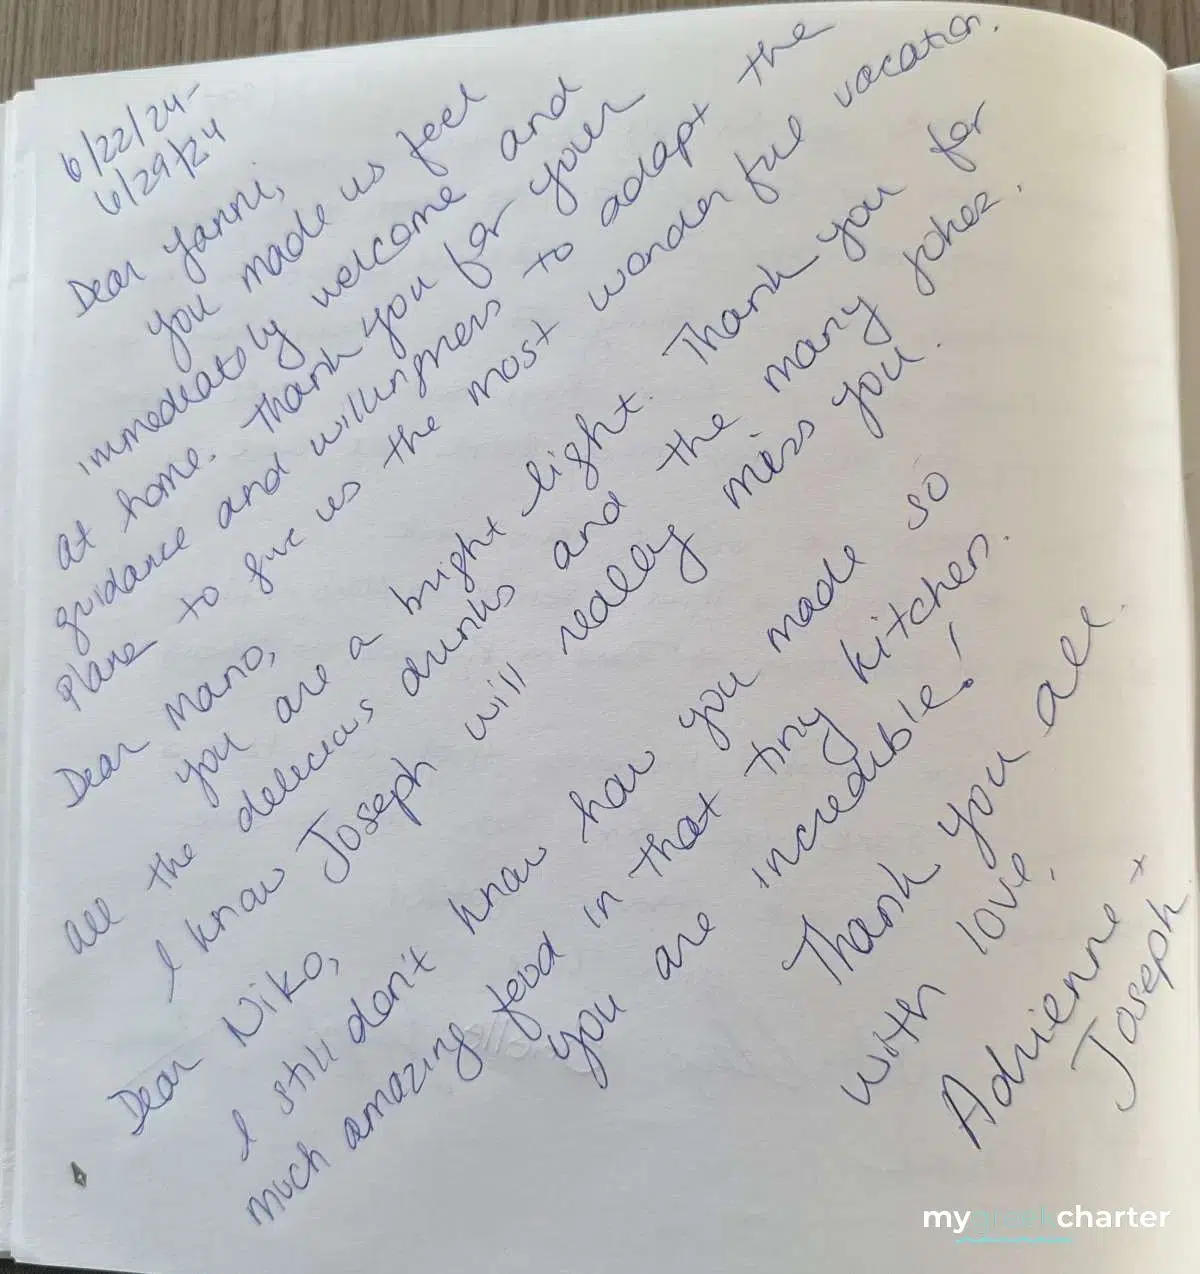 6/22/24-
6/29/24
Dear Yanni,
you made us feel
immediately welcome and
at home. Thank you for your
guidance and willingness to adapt the
plane to give us the most wonderful vacation.
Dear Mano,
you are a bright light. Thank you for
all the delecious drinks and the many jokes.
I know Joseph will really miss you.
Dear Niko,
I still don't know how you made so
much amazing food in that tiny kitchen.
you are incredible!
Thank you all.
with love,
Adrienne +
Joseph
mygreekcharter